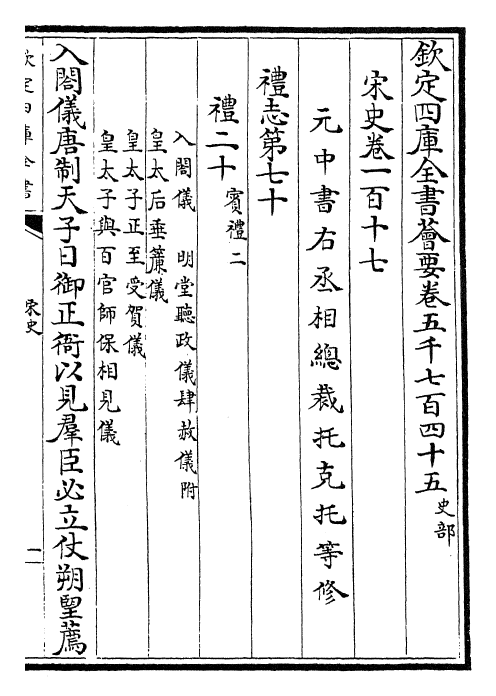 欽定四庫全書薈要卷五千七百四十五 史部
宋史卷一百十七
元中書右丞相總裁托克托等修
禮志第七十
禮二十 賓禮二
入閤儀 明堂聽政儀 肆赦儀附
皇太后垂簾儀
皇太子正至受賀儀
皇太子與百官師保相見儀
入閤儀唐制天子日御正衙以見羣臣必立仗朔望薦
欽定四庫全書
宋史
一